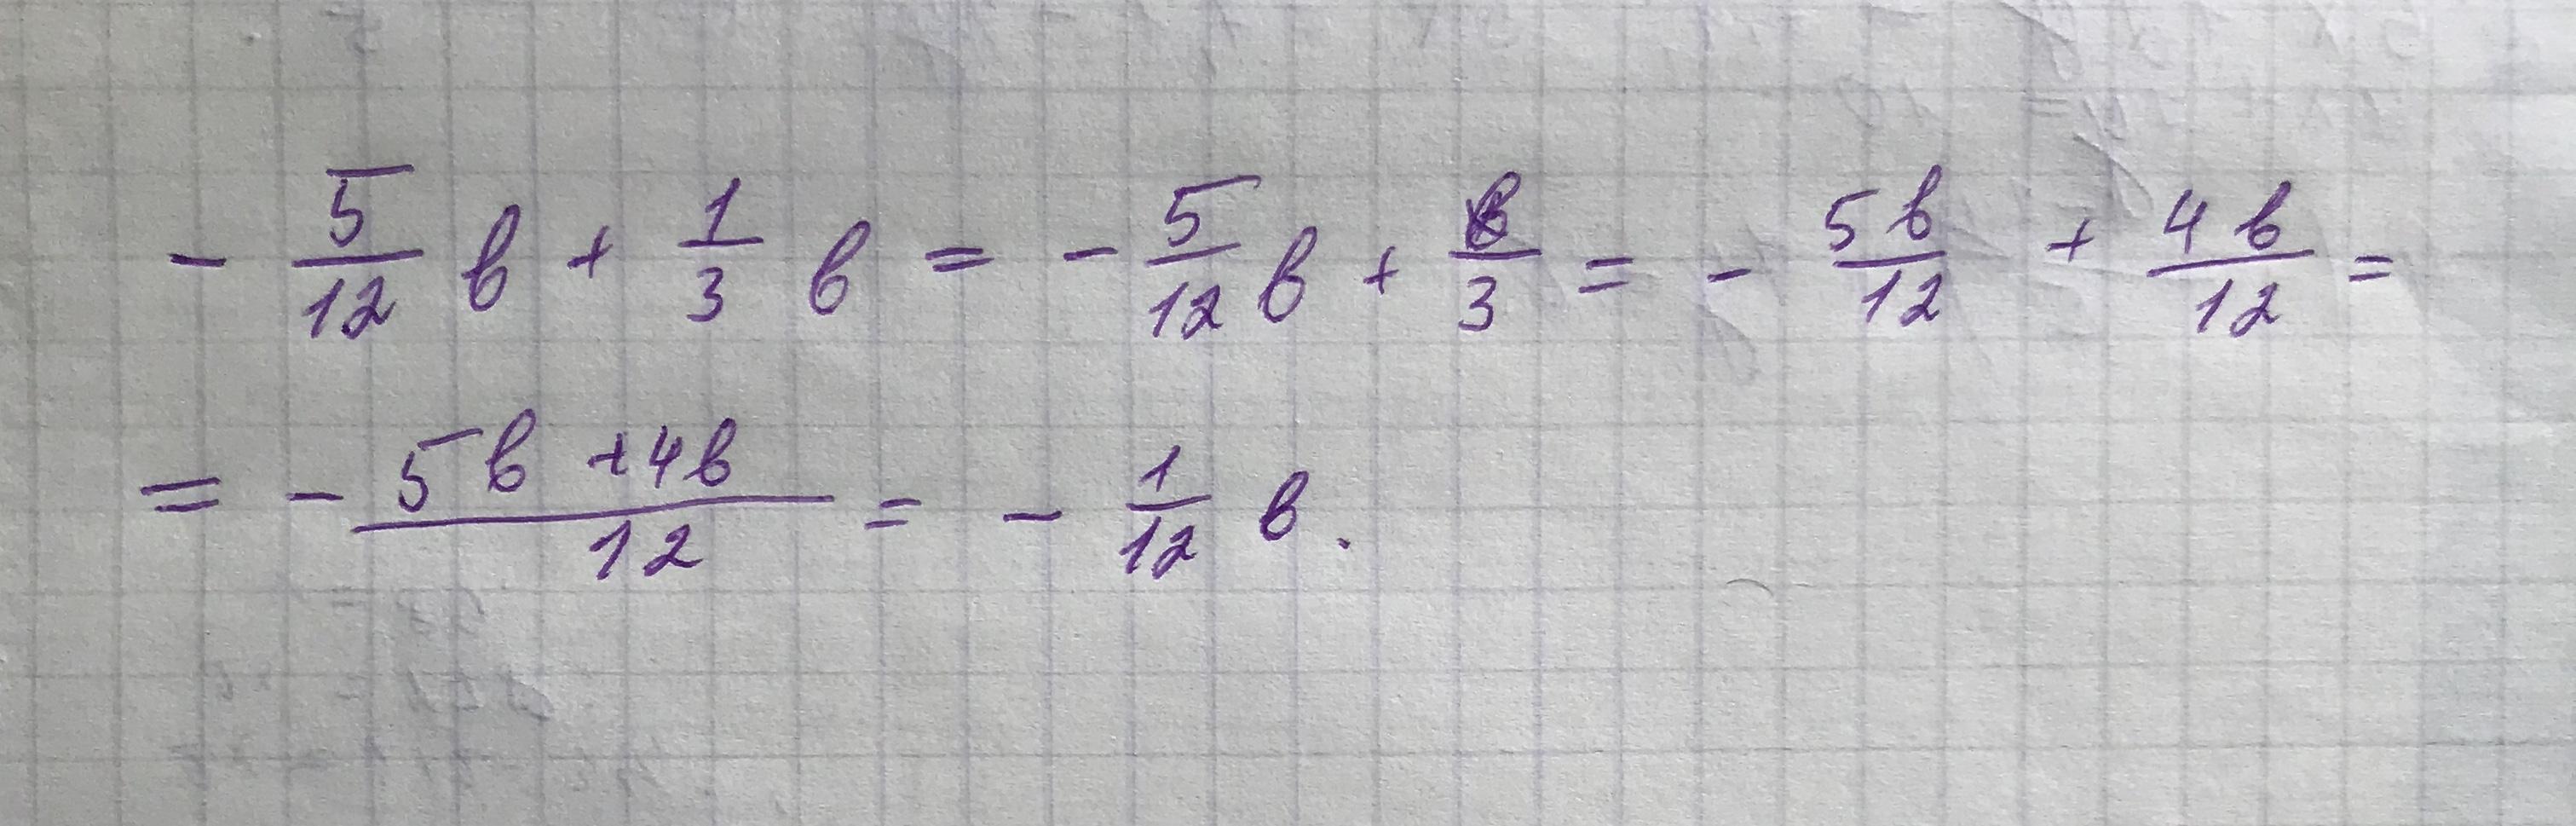 - 5/12 в + 1/3 в = - 5/12 в + в/3 = - 5в/12 + 4в/12 =
= - 5в + 4в/12 = - 1/12 в.